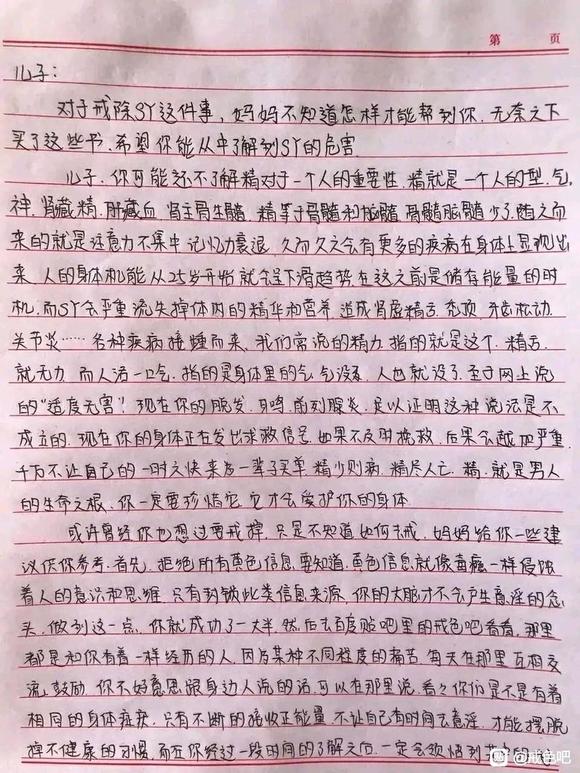 第 页
儿子：
对于戒除SY这件事，妈妈不知道怎样才能帮到你，无奈之下
买了这些书，希望你能从中了解到SY的危害
儿子，你可能还不了解精对于一个人的重要性，精就是一个人的型，气
神，肾藏精，肝藏血，肾主骨生髓，精等于骨髓和脑髓，骨髓脑髓少了，随之而
来的就是注意力不集中，记忆力衰退，久而久之会有更多的疾病在身体上显现出
来，人的身体机能从25岁开始就会呈下滑趋势，在这之前是储存能量的时
机，而SY会严重流失掉体内的精华和营养，造成肾虚精亏，秃顶，牙齿松动，
关节炎……各种疾病接踵而来，我们常说的精力，指的就是这个，精亏，
就无力，而人活一口气，指的是身体里的气，气没了，人也就没了，至于网上说
的"适度无害"！现在你的脱发，耳鸣，前列腺炎，足以证明这种说法是不
成立的，现在你的身体正在发出求救信号，如果不及时挽救，后果会越加严重，
千万不让自己的一时之快来为一辈子买单，精少则病，精尽人亡，精，就是男人
的生命之根，你一定要珍惜它，它才会爱护你的身体
或许曾经你也想过要戒掉，只是不知道如何去戒，妈妈给你一些建
议供你参考，首先，拒绝所有黄色信息，要知道，黄色信息就像毒瘾一样侵蚀
着人的意识和思维，只有封锁此类信息来源，你的大脑才不会产生意淫的念
头，做到这一点，你就成功了一大半，然后去百度贴吧里的戒色吧看看，那里
都是和你有着一样经历的人，因为某种不同程度的痛苦，每天在那里互相交
流，鼓励，你不好意思跟身边人说的话，可以在那里说，看看你们是不是有着
相同的身体症状，只有不断的接收正能量，不让自己有时间去意淫，才能摆脱
掉不健康的习惯，而在你经过一段时间的了解之后，一定会领悟到
@戒色吧